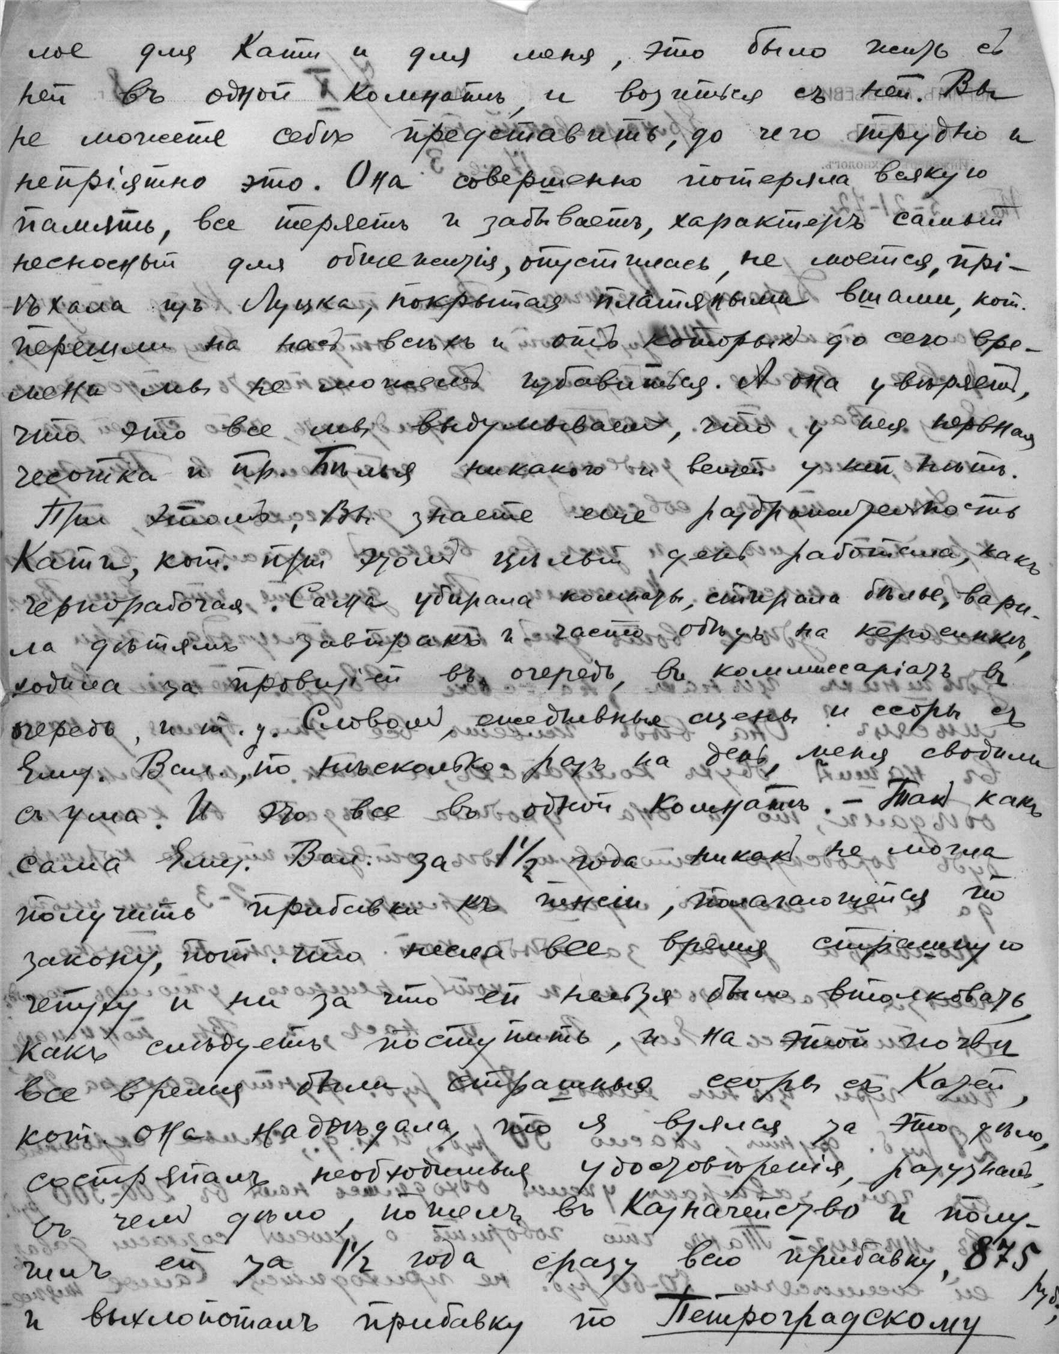 лое для Кати и для меня, это было жить съ
ней въ одной комнатѣ, и возиться съ ней. Вы
не можете себѣ представить, до чего трудно и
непрiятно это. Она совершенно потеряла всякую
память, все теряетъ и забываетъ, характеръ самый
несносный для общежитiя, опустилась, не моется, прi-
ѣхала изъ Луцка, покрытая платяными вшами, кот.
перешли на насъ всѣхъ и отъ которыхъ до сего вре-
мени мы не можемъ избавиться. А она увѣряетъ,
что это все мы выдумываемъ, что у нея нервная
чесотка и пр. Бѣлья никакого и вещей у ней нѣтъ.
При этомъ, Вы знаете еще раздражительность
Кати, кот. при этомъ цѣлый день работала, какъ
чернорабочая. Сама убирала комнаты, стирала бѣлье, вари-
ла дѣтямъ завтракъ и часто обѣдъ на керосинкѣ,
ходила за провизiей въ очередь, въ коммиссарiатъ въ
очередь, и т. д. Словомъ, ежедневныя сцены и ссоры съ
Елиз. Вал., по нѣсколько разъ на день, меня сводили
съ ума. И это все въ одной комнатѣ. – Такъ какъ
сама Елиз. Вал. за 1½ года никакъ не могла
получить прибавки къ пенсiи, полагающейся по
закону, пот. что несла все время страшную
чепуху и ни за что ей нельзя было втолковать,
какъ слѣдуетъ поступить, и на этой почвѣ
все время были страшныя ссоры съ Катей,
кот. она надоѣдала, то я взялся за это дѣло,
состряпалъ необходимыя удостовѣренiя, разузналъ,
въ чемъ дѣло, пошелъ въ Казначейство и полу-
чилъ ей за 1½ года сразу всю прибавку, 875 руб.,
и выхлопоталъ прибавку по Петроградскому